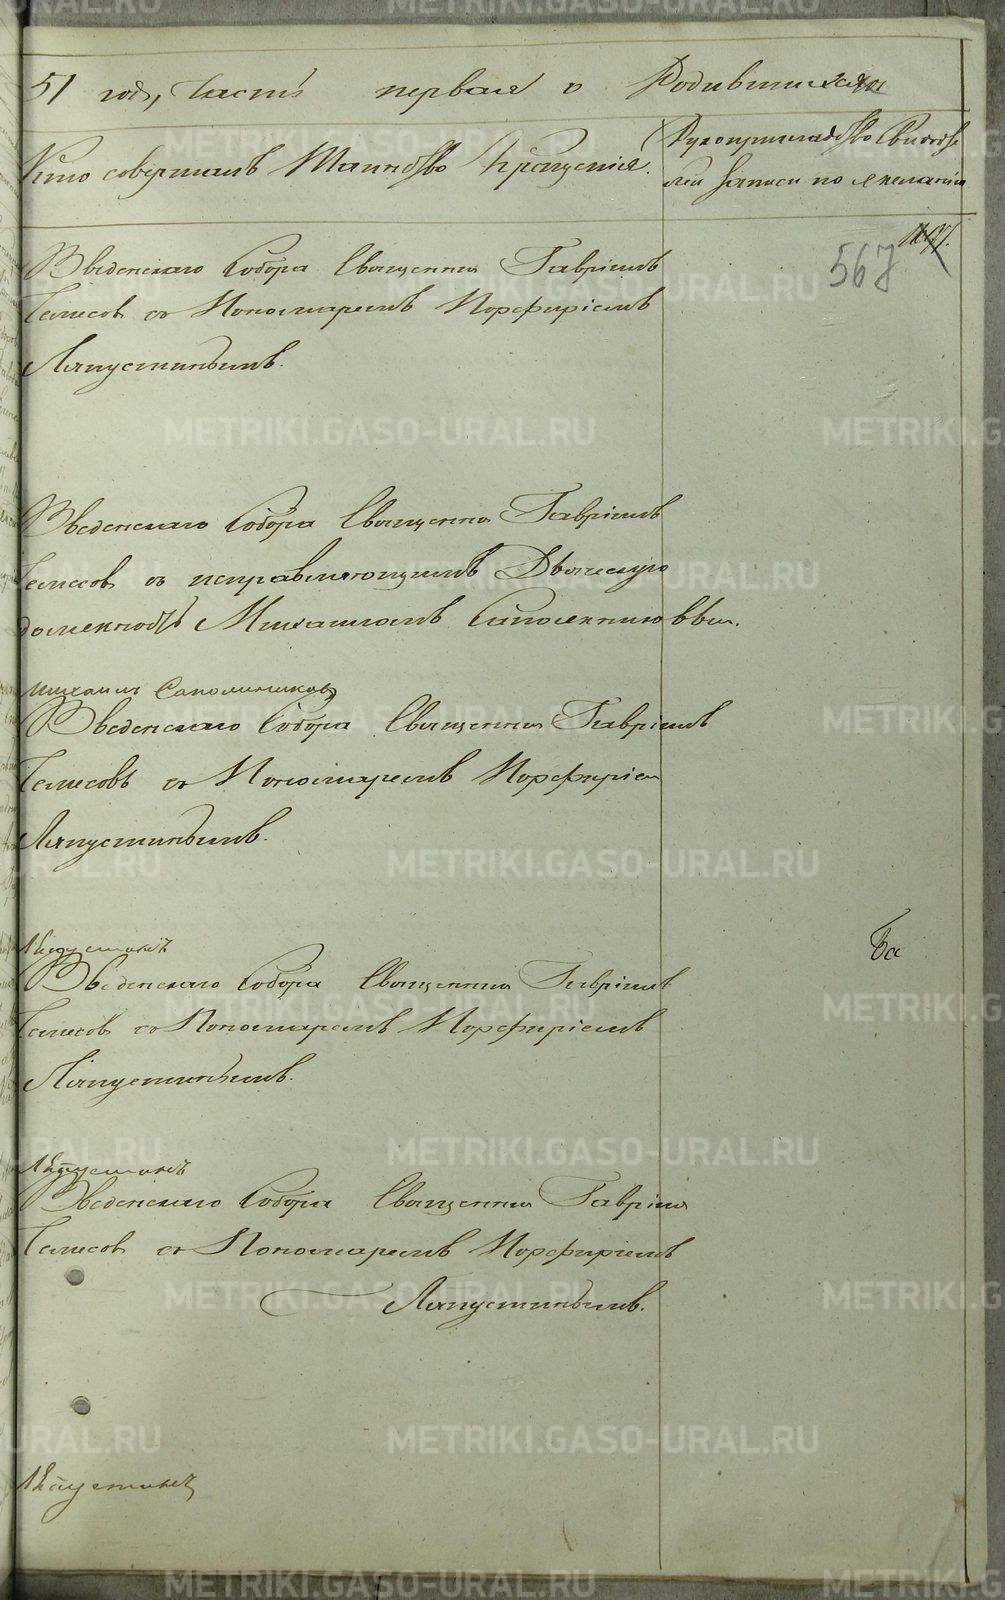 51 год, Часть первая о Родившихся
Кто совершалъ Таинство Крещенія.
Рукоприкладство свидѣте
лей записи по желанію
567
Введенскаго Собора Священник Гавріилъ
съ Пономаремъ Порфиріемъ
Ляпустинымъ.
Введенскаго Собора Священник Гавріилъ
съ исправляющимъ Дьяческую
должность Михаиломъ Сапожниковым.
Михаил Сапожников
Введенскаго Собора Священник Гавріилъ
съ Пономаремъ Порфиріем
Ляпустинымъ.
Ляпустинъ
Введенскаго Собора Священник Гавріилъ
со Пономаремъ Порфиріемъ
Ляпустинымъ.
Ляпустинъ
Введенскаго Собора Священник Гавріил
съ Пономаремъ Порфиріемъ
Ляпустинымъ.
Ляпустинъ
METRIKI.GASO-URAL.RU